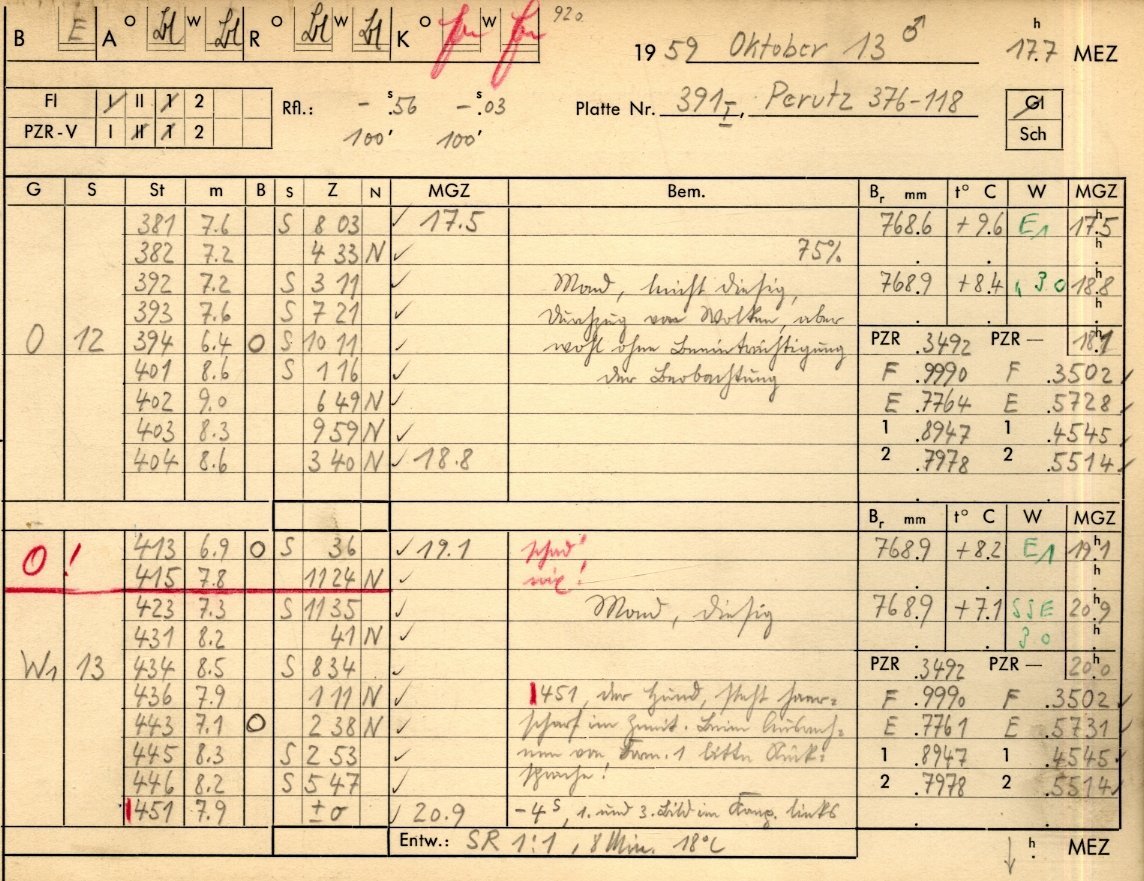 B E A O Bl W Bl R O Bl W Bl K O W 920
1959 Oktober 13 ♂ 17.7 h MEZ
FI I II 1 2
PZR-V I II 1 2
Rfl.: - s.56 - s.03
100' 100'
Platte Nr. 391 I, Perutz 376-118
Gl
Sch
G S St m B S Z N MGZ Bem. Br mm t° C W MGZ
381 7.6 S 8 03 ✓ 17.5 768.6 +9.6 E1 17.5 h
382 7.2 4 33 N ✓ 75%
392 7.2 S 3 11 ✓ Mond, leicht diesig, 768.9 +8.4 18.8 h
393 7.6 S 7 21 ✓ Durchzug von Wolken, aber
O 12 394 6.4 O S 10 11 ✓ wohl ohne Beeinträchtigung PZR .3492 PZR — 18.1 h
401 8.6 S 1 16 ✓ der Beobachtung F .9990 F .3502 ✓
402 9.0 6 49 N ✓ E .7764 E .5728 ✓
403 8.3 9 59 N ✓ 1 .8947 1 .4545 ✓
404 8.6 3 40 N ✓ 18.8 2 .7978 2 .5514 ✓
Br mm t° C W MGZ
O! 413 6.9 O S 36 ✓ 19.1 768.9 +8.2 E1 19.1 h
415 7.8 11 24 N ✓
423 7.3 S 11 35 ✓ Mond, diesig 768.9 +7.1 SSE 20.9 h
431 8.2 41 N ✓
W1 13 434 8.5 S 8 34 ✓ PZR .3492 PZR — 20.0 h
436 7.9 1 11 N ✓ 451, der Hund, steht haar- F .9990 F .3502 ✓
443 7.1 O 2 38 N ✓ scharf im Zenit. Beim Ausmes- E .7761 E .5731 ✓
445 8.3 S 2 53 ✓ von 1 bitte Rück- 1 .8947 1 .4545 ✓
446 8.2 S 5 47 ✓ sprache! 2 .7978 2 .5514 ✓
451 7.9 ±0 ✓ 20.9 -4 s, 1. und 3. Bild im links
Entw.: SR 1:1, 8 Min. 18°C
h MEZ